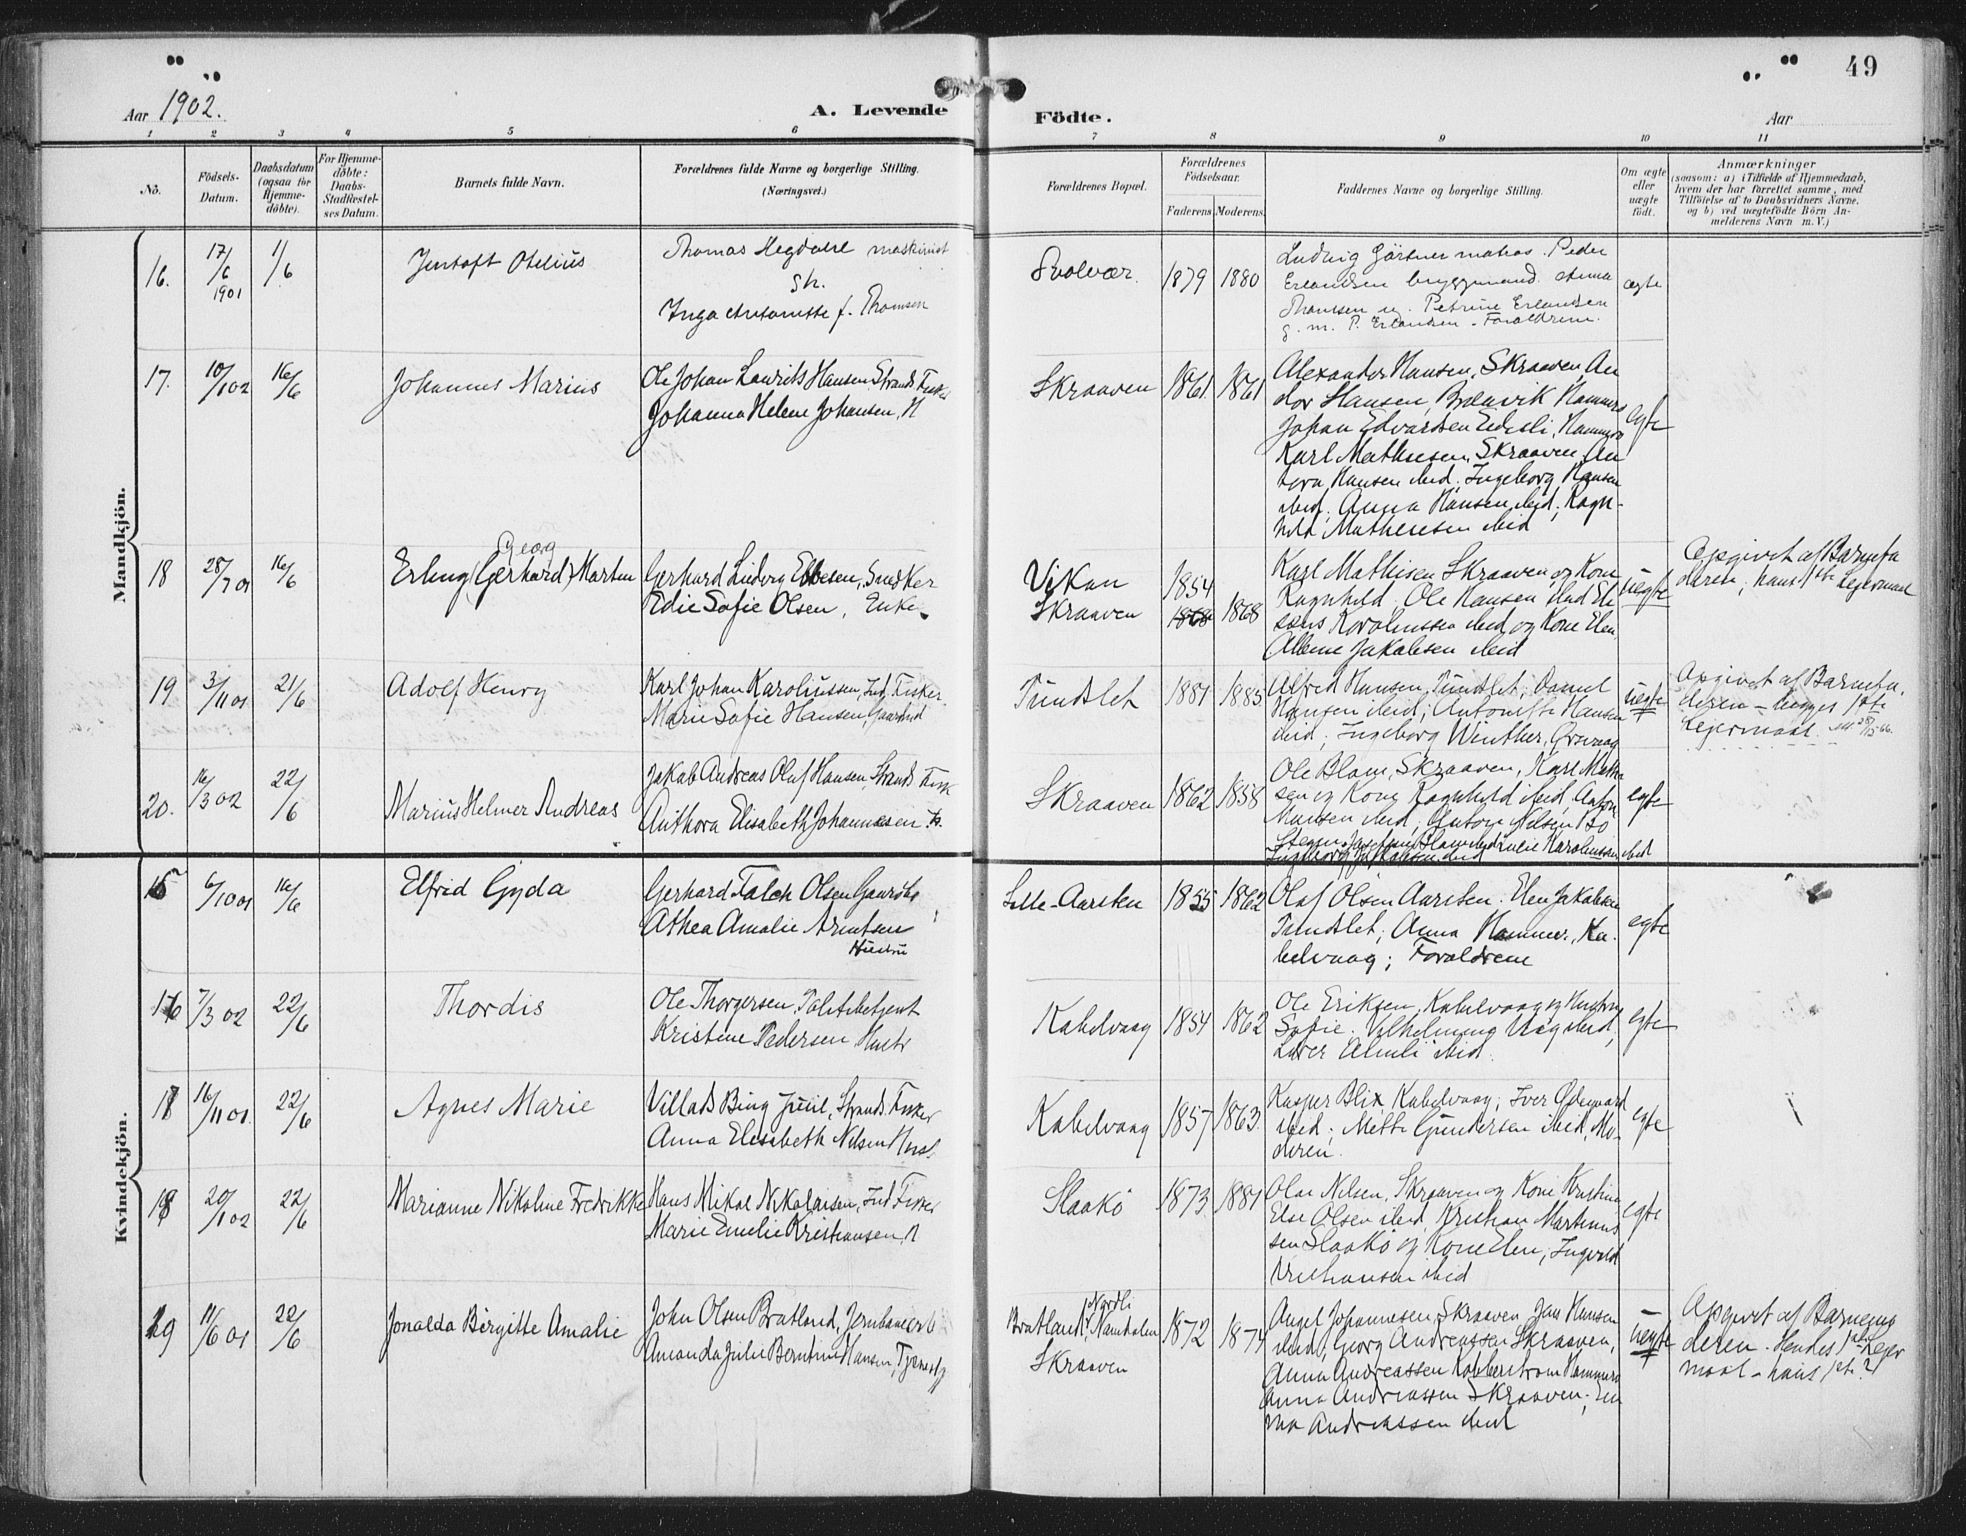 49
Aar 1902.
A. Levende
Födte.
Aar
1 2 3 4 5 6
7 8 9 10 11
No.
Födsels-
Datum.
Daabsdatum
(ogsaa for
Hjemme-
döbte).
For Hjemme-
döbte:
Daabs-
Stadfæstel-
ses Datum.
Barnets fulde Navn.
Forældrenes fulde Navne og borgerlige Stilling.
(Næringsvei.)
Forældrenes Bopæl.
Forældrenes
Födselsaar.
Faderens. Moderens.
Faddernes Navne og borgerlige Stilling.
Om ægte
eller
uægte
födt.
Anmærkninger
(saasom: a) i Tilfælde af Hjemmedaab,
hvem der har forrettet samme, med
Tilföielse af to Daabsvidners Navne,
og b) ved uægtefödte Börn An-
melderens Navn m. V.)
Mandkjön.
16.
17/6 1901
1/6
Jentoft Otelius
Thomas Hegdahl maskinist
Inga Antonette f. Thomsen
Svolvær.
1879
1880
Ludvig Gärtner matros. Peder
Erlandsen bryggemand. Anna
Thomsen ug. Petrine Erlandsen
g. m. P. Erlandsen. Forældrene.
ægte
17.
10/1 02
16/6
Johannes Marius
Ole Johan Laurits Hansen Strands. Fisker
Johanna Helene Johansen, H
Skraaven
1861
1861
Alexander Hansen, Skraaven, An
dor Hansen, Brænvik Hammerø
Johan Edvardsen Eidesli, Hammerø
Karl Mathisen, Skraaven, An
tora Hansen ibid, Ingeborg Hansen
ibid, Anna Hansen ibid; Ragn-
hild Mathiesen ibid
egte
18
28/7 01
16/6
Georg
Erling (Gerhard) Morten
Gerhard Ludvig Ebbesen, Snedker
Edie Sofie Olsen, Enke.
Vikan
Skraaven
1854
1868
1868
Karl Mathisen Skraaven og Kone
Ragnhild, Ole Hansen ibid
Karolinssen ibid og Kone Elen
Jakobsen ibid
uegte
Opgivet af Barnefa
deren; hans 1ste Leiermaal
19
3/11 01
21/6
Adolf Henry
Karl Johan Karoliussen, Ind. Fisker
Marie Sofie Hansen, Gaardid
Tundslet
1881
1885
Alfred Hansen, Tundslet; Daniel
Hansen ibid; Antonette Hansen
ibid; Ingeborg Winther, Ørsvaag
uegte
Opgivet af Barnefa.
deren - begges 1ste
Leiermaal.
20.
16/3 02
22/6
Marius Helmer Andreas
Jakob Andreas Oluf Hansen, Strands. Fisk
Anthora Elisabeth Johannesen H.
Skraaven
1862
1858
Ole Blom, Skraaven, Karl Mathi
sen og Kone Ragnhild ibid, Anton
Hansen ibid, Anton Nilsen
egte
Kvindekjön.
15
6/10 01
16/6
Elfrid Gyda
Gerhard Falck Olsen Gaardbr
Athea Amalie Arntsen
Hustru
Lille-Aarsten
1855
1862
Olaf Olsen Aarsten. Elen Jakobsen
Tundslet; Anna Hammer, Ka
belvaag; Forældrene
egte
16
7/3 02
22/6
Thordis
Ole Thorgersen, Politibetjent
Kristine Pedersen Hustr
Kabelvaag
1854
1862
Ole Eriksen, Kabelvaag og Hustru
Sofie; Vilhelmine Vaag ibid,
ibid.
egte
17
16/11 01
22/6
Agnes Marie
Villads Bing Juul, Strands. Fisker
Anna Elisabeth Nilsen Hust.
Kabelvaag
1857
1863.
Kasper Blix, Kabelvaag; Iver Ødegaard
ibid; Mette Gundersen ibid, Mo-
deren.
egte
18
20/1 02
22/6
Marianne Nikoline Fredrikke
Hans Mikal Nikolaisen, Ind Fisker
Marie Emelie Kristiansen, H
Slaakø
1873
1881
Olai Nilsen, Skraaven og Kone Kristine
Else Olsen ibid, Kristian Martinus
sen Slaakø og Kone Elen, Ingvald
Kristiansen ibid
egte
19
11/6 01
22/6
Jonalda Birgitte Amalie
John Olsen Bratland, Jernbanearb
Amanda Julie Berntine Hansen, Tjenestp
Bratland, Nordli
Namdalen
Skraaven
1872
1874
Angel Johannesen, Skraaven, Jan Hansen
ibid, Georg Andreassen Skraaven,
Anna Andreassen Kobberstrom Hammerø
Anna Andreassen Skraaven; Em
ma Andreassen ibid
uegte
Opgivet af Barnemo
deren. Hendes 1ste Leier
maal - hans 1ste?